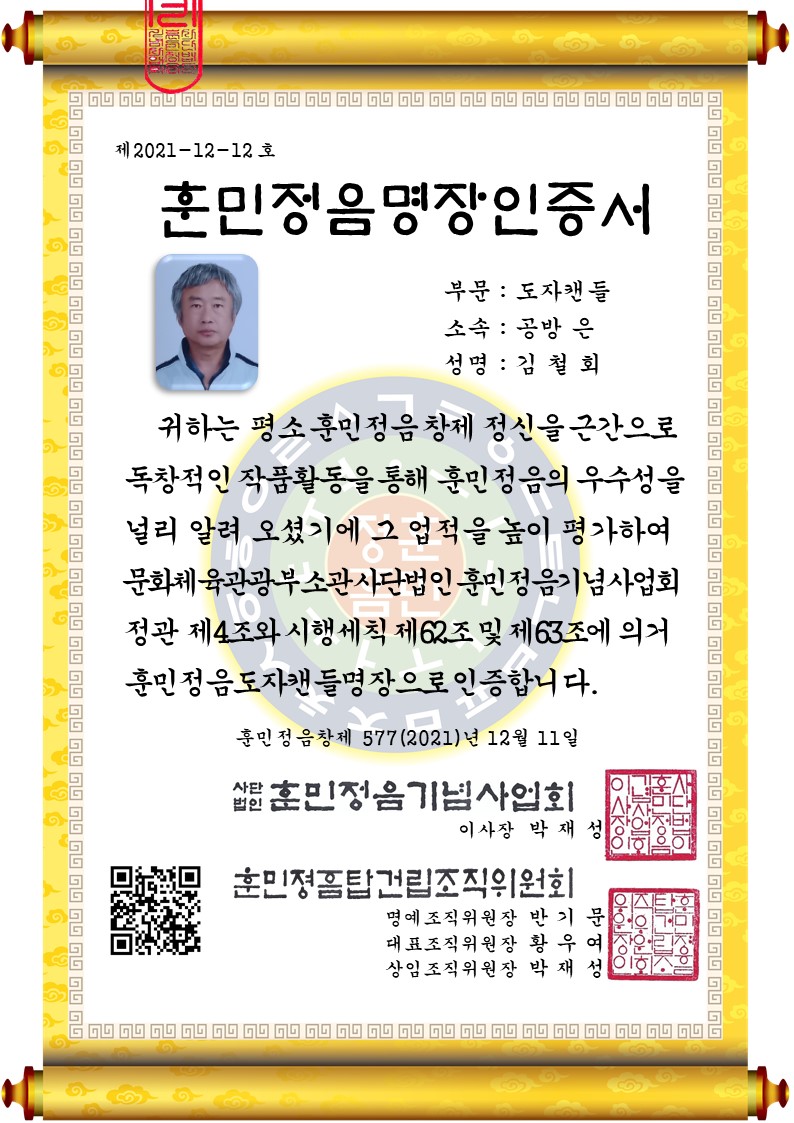 제2021-12-12 호
훈민정음명장인증서
부문 : 도자캔들
소속 : 공방 은
성명 : 김 철 회
귀하는 평소 훈민정음 창제 정신을 근간으로
독창적인 작품활동을 통해 훈민정음의 우수성을
널리 알려 오셨기에 그 업적을 높이 평가하여
문화체육관광부 소관 사단법인 훈민정음기념사업회
정관 제4조와 시행세칙 제62조 및 제63조에 의거
훈민정음도자캔들명장으로 인증합니다.
훈민정음창제 577(2021)년 12월 11일
사단법인 훈민정음기념사업회
이사장 박 재 성
훈민정음탑건립조직위원회
명예조직위원장 반 기 문
대표조직위원장 황 우 여
상임조직위원장 박 재 성